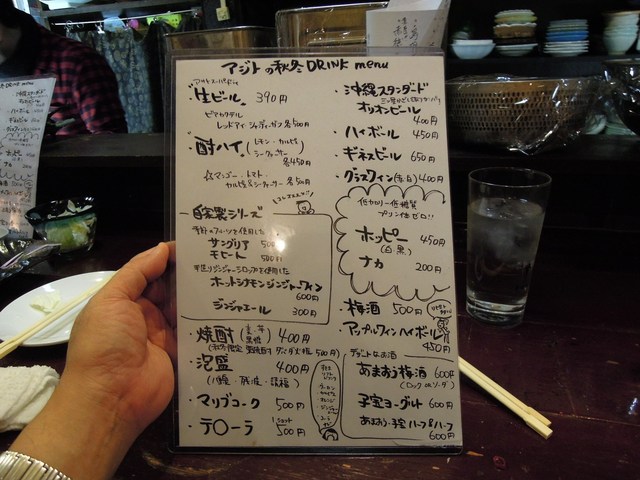 アジトの秋冬 DRINK menu
・生ビール 390円
ビアカクテル
レッドアイ・シャンディガフ 各500円
・酎ハイ (レモン・カルピス
シークヮーサー
各450円
☆マンゴー・トマト・
カルピス&シークヮーサー 各500円
自家製シリーズ
季節のフルーツを使用した
サングリア 500円
モヒート 500円
手作りジンジャーシロップを使用した
ホットシナモンジンジャーワイン
600円
ジンジャエール 300円
・焼酎 (麦・芋
黒糖) 400円
・泡盛 400円
(八重・残波・瑞福)
・マリブコーク 500円
・テ〇ーラ 1ショット 500円
・沖縄スタンダード
オリオンビール
400円
・ハイボール 450円
・ギネスビール 650円
・グラスワイン(赤・白) 400円
低カロリー低糖質
プリン体ゼロ!!
ホッピー 450円
(白・黒)
ナカ 200円
・梅酒 500円
・アップルワインハイボール
450円
デザートなお酒
あまおう梅酒 600円
(ロック or ソーダ)
子宝ヨーグルト 600円
あまおう・子宝ハーフ&ハーフ
600円